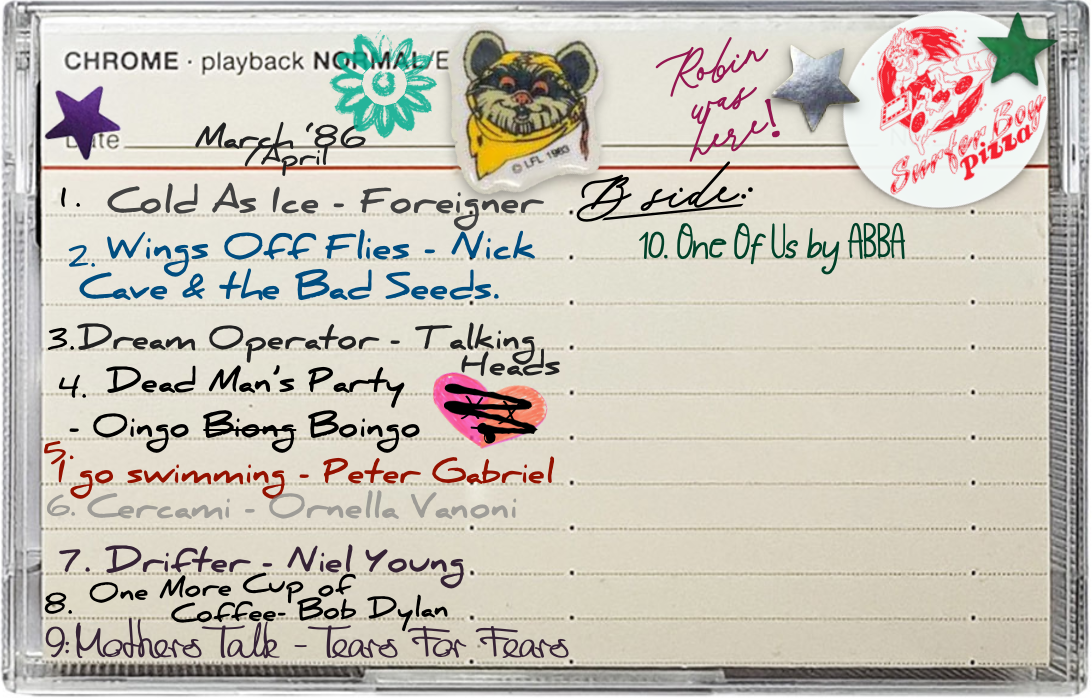 CHROME · playback NORMAL/E
Robin
was
here!
Surfer Boy
Pizza
© LFL 1983
March '86
/April
1. Cold As Ice - Foreigner
2. Wings Off Flies - Nick
Cave & the Bad Seeds.
3. Dream Operator - Talking
Heads
4. Dead Man's Party
- Oingo Biong Boingo
5.
I go swimming - Peter Gabriel
6. Cercami - Ornella Vanoni
7. Drifter - Niel Young
8. One More Cup of
Coffee- Bob Dylan
9: Mothers Talk - Tears For Fears
B side:
10. One Of Us by ABBA